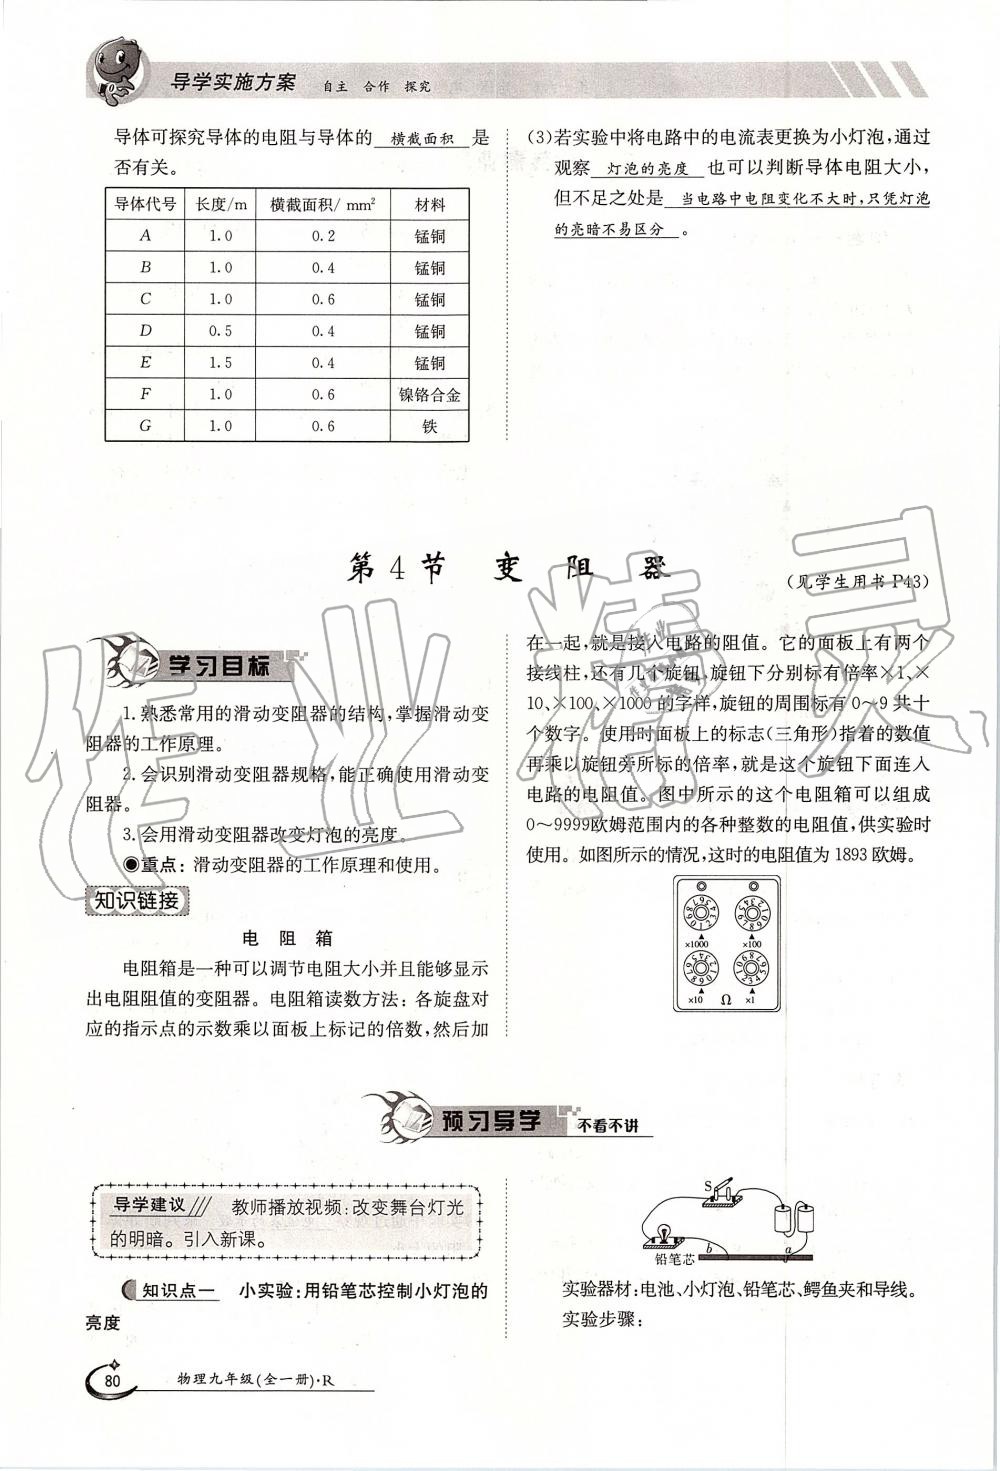 导学实施方案 自主 合作 探究
导体可探究导体的电阻与导体的 横截面积 是
否有关。
导体代号 长度/m 横截面积/mm² 材料
A 1.0 0.2 锰铜
B 1.0 0.4 锰铜
C 1.0 0.6 锰铜
D 0.5 0.4 锰铜
E 1.5 0.4 锰铜
F 1.0 0.6 镍铬合金
G 1.0 0.6 铁
(3)若实验中将电路中的电流表更换为小灯泡,通过
观察 灯泡的亮度 也可以判断导体电阻大小,
但不足之处是 当电路中电阻变化不大时,只凭灯泡
的亮暗不易区分 。
第4节 变 阻 器
(见学生用书P43)
学习目标
1.熟悉常用的滑动变阻器的结构,掌握滑动变
阻器的工作原理。
2.会识别滑动变阻器规格,能正确使用滑动变
阻器。
3.会用滑动变阻器改变灯泡的亮度。
●重点:滑动变阻器的工作原理和使用。
知识链接
电 阻 箱
电阻箱是一种可以调节电阻大小并且能够显示
出电阻阻值的变阻器。电阻箱读数方法:各旋盘对
应的指示点的示数乘以面板上标记的倍数,然后加
在一起,就是接入电路的阻值。它的面板上有两个
接线柱,还有几个旋钮,旋钮下分别标有倍率×1、×
10、×100、×1000的字样,旋钮的周围标有0～9共十
个数字。使用时面板上的标志(三角形)指着的数值
再乘以旋钮旁所标的倍率,就是这个旋钮下面连入
电路的电阻值。图中所示的这个电阻箱可以组成
0～9999欧姆范围内的各种整数的电阻值,供实验时
使用。如图所示的情况,这时的电阻值为1893欧姆。
×1000 ×100
×10 Ω ×1
预习导学 不看不讲
导学建议 教师播放视频:改变舞台灯光
的明暗。引入新课。
知识点一 小实验:用铅笔芯控制小灯泡的
亮度
S
铅笔芯 b a
实验器材:电池、小灯泡、铅笔芯、鳄鱼夹和导线。
实验步骤:
80 物理九年级(全一册)·R
作业精灵